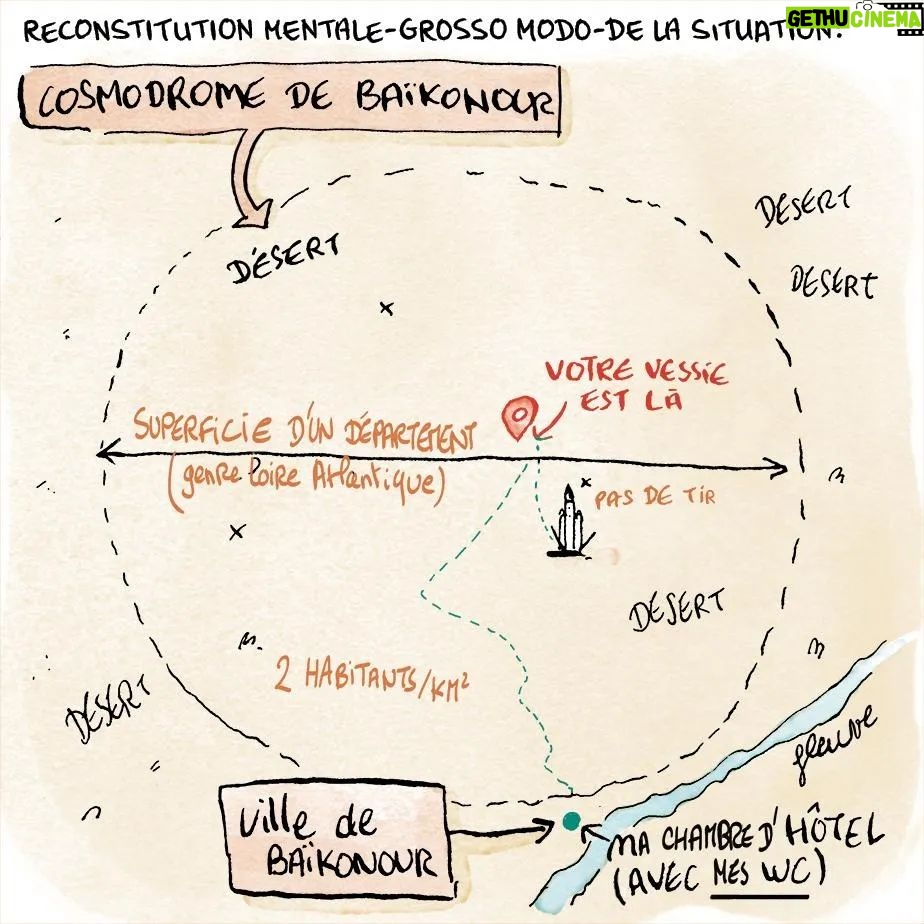 RECONSTITUTION MENTALE-GROSSO MODO-DE LA SITUATION.
GETHUCINEMA
COSMODROME DE BAïKONOUR
DESERT
DÉSERT
DESERT
VOTRE VESSiE
EST LÀ
SUPERFiCiE D'UN DÉPARTEMENT
(genre Loire Atlantique)
PAS DE TiR
DESERT
2 HABiTANTS/KM²
DESERT
fleuve
Ville de
BAÏKONOUR
MA CHAMBRE D'HÔTEL
(AVEC MES WC)